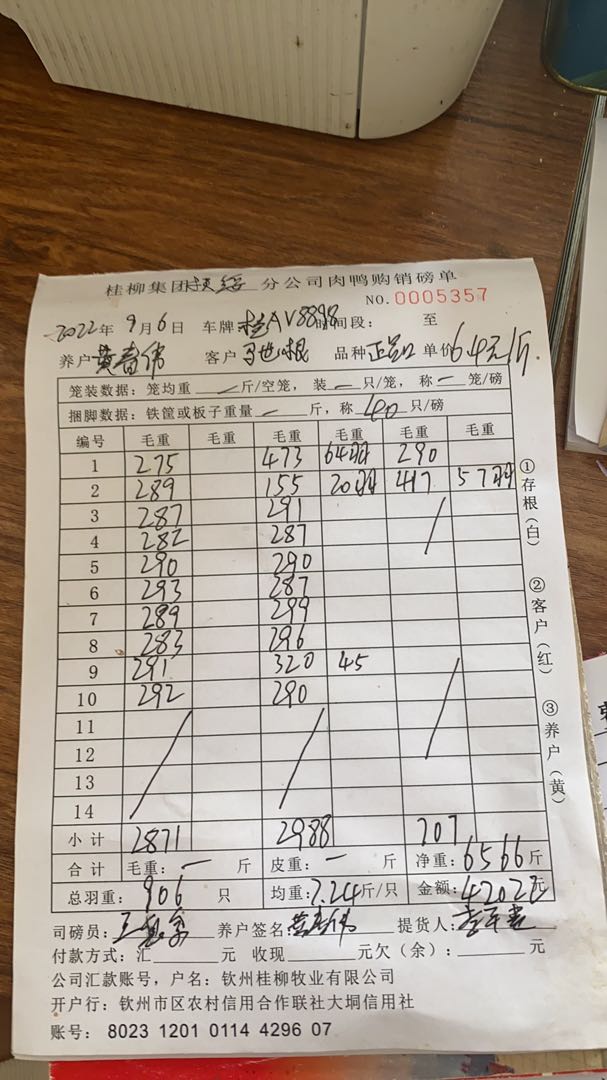 桂柳集团 分公司肉鸭购销磅单
NO.0005357
2022年9月6日 车牌 桂AV8898 时间段： 至
养户 黄春伟 客户 品种 正品 单价 6.4元/斤
笼装数据：笼均重 — 斤/空笼，装 — 只/笼，称 — 笼/磅
捆脚数据：铁筐或板子重量 — 斤，称 40 只/磅
编号 毛重 毛重 毛重 毛重 毛重
1 275 473 64羽 290
2 289 155 20羽 417 57羽
3 287 291
4 282 287
5 290 290
6 293 287
7 289 299
8 283 296
9 291 320 45
10 292 290
11
12
13
14
小计 2871 2988 707
合计 毛重：— 斤 皮重：— 斤 净重：6566斤
总羽重：906 只 均重：7.24斤/只 金额：4202元
司磅员： 养户签名：黄春伟 提货人：
付款方式：汇 元 收现 元欠（余）： 元
公司汇款账号，户名：钦州桂柳牧业有限公司
开户行：钦州市区农村信用合作联社大垌信用社
账号：8023 1201 0114 4296 07
①存根（白）
②客户（红）
③养户（黄）